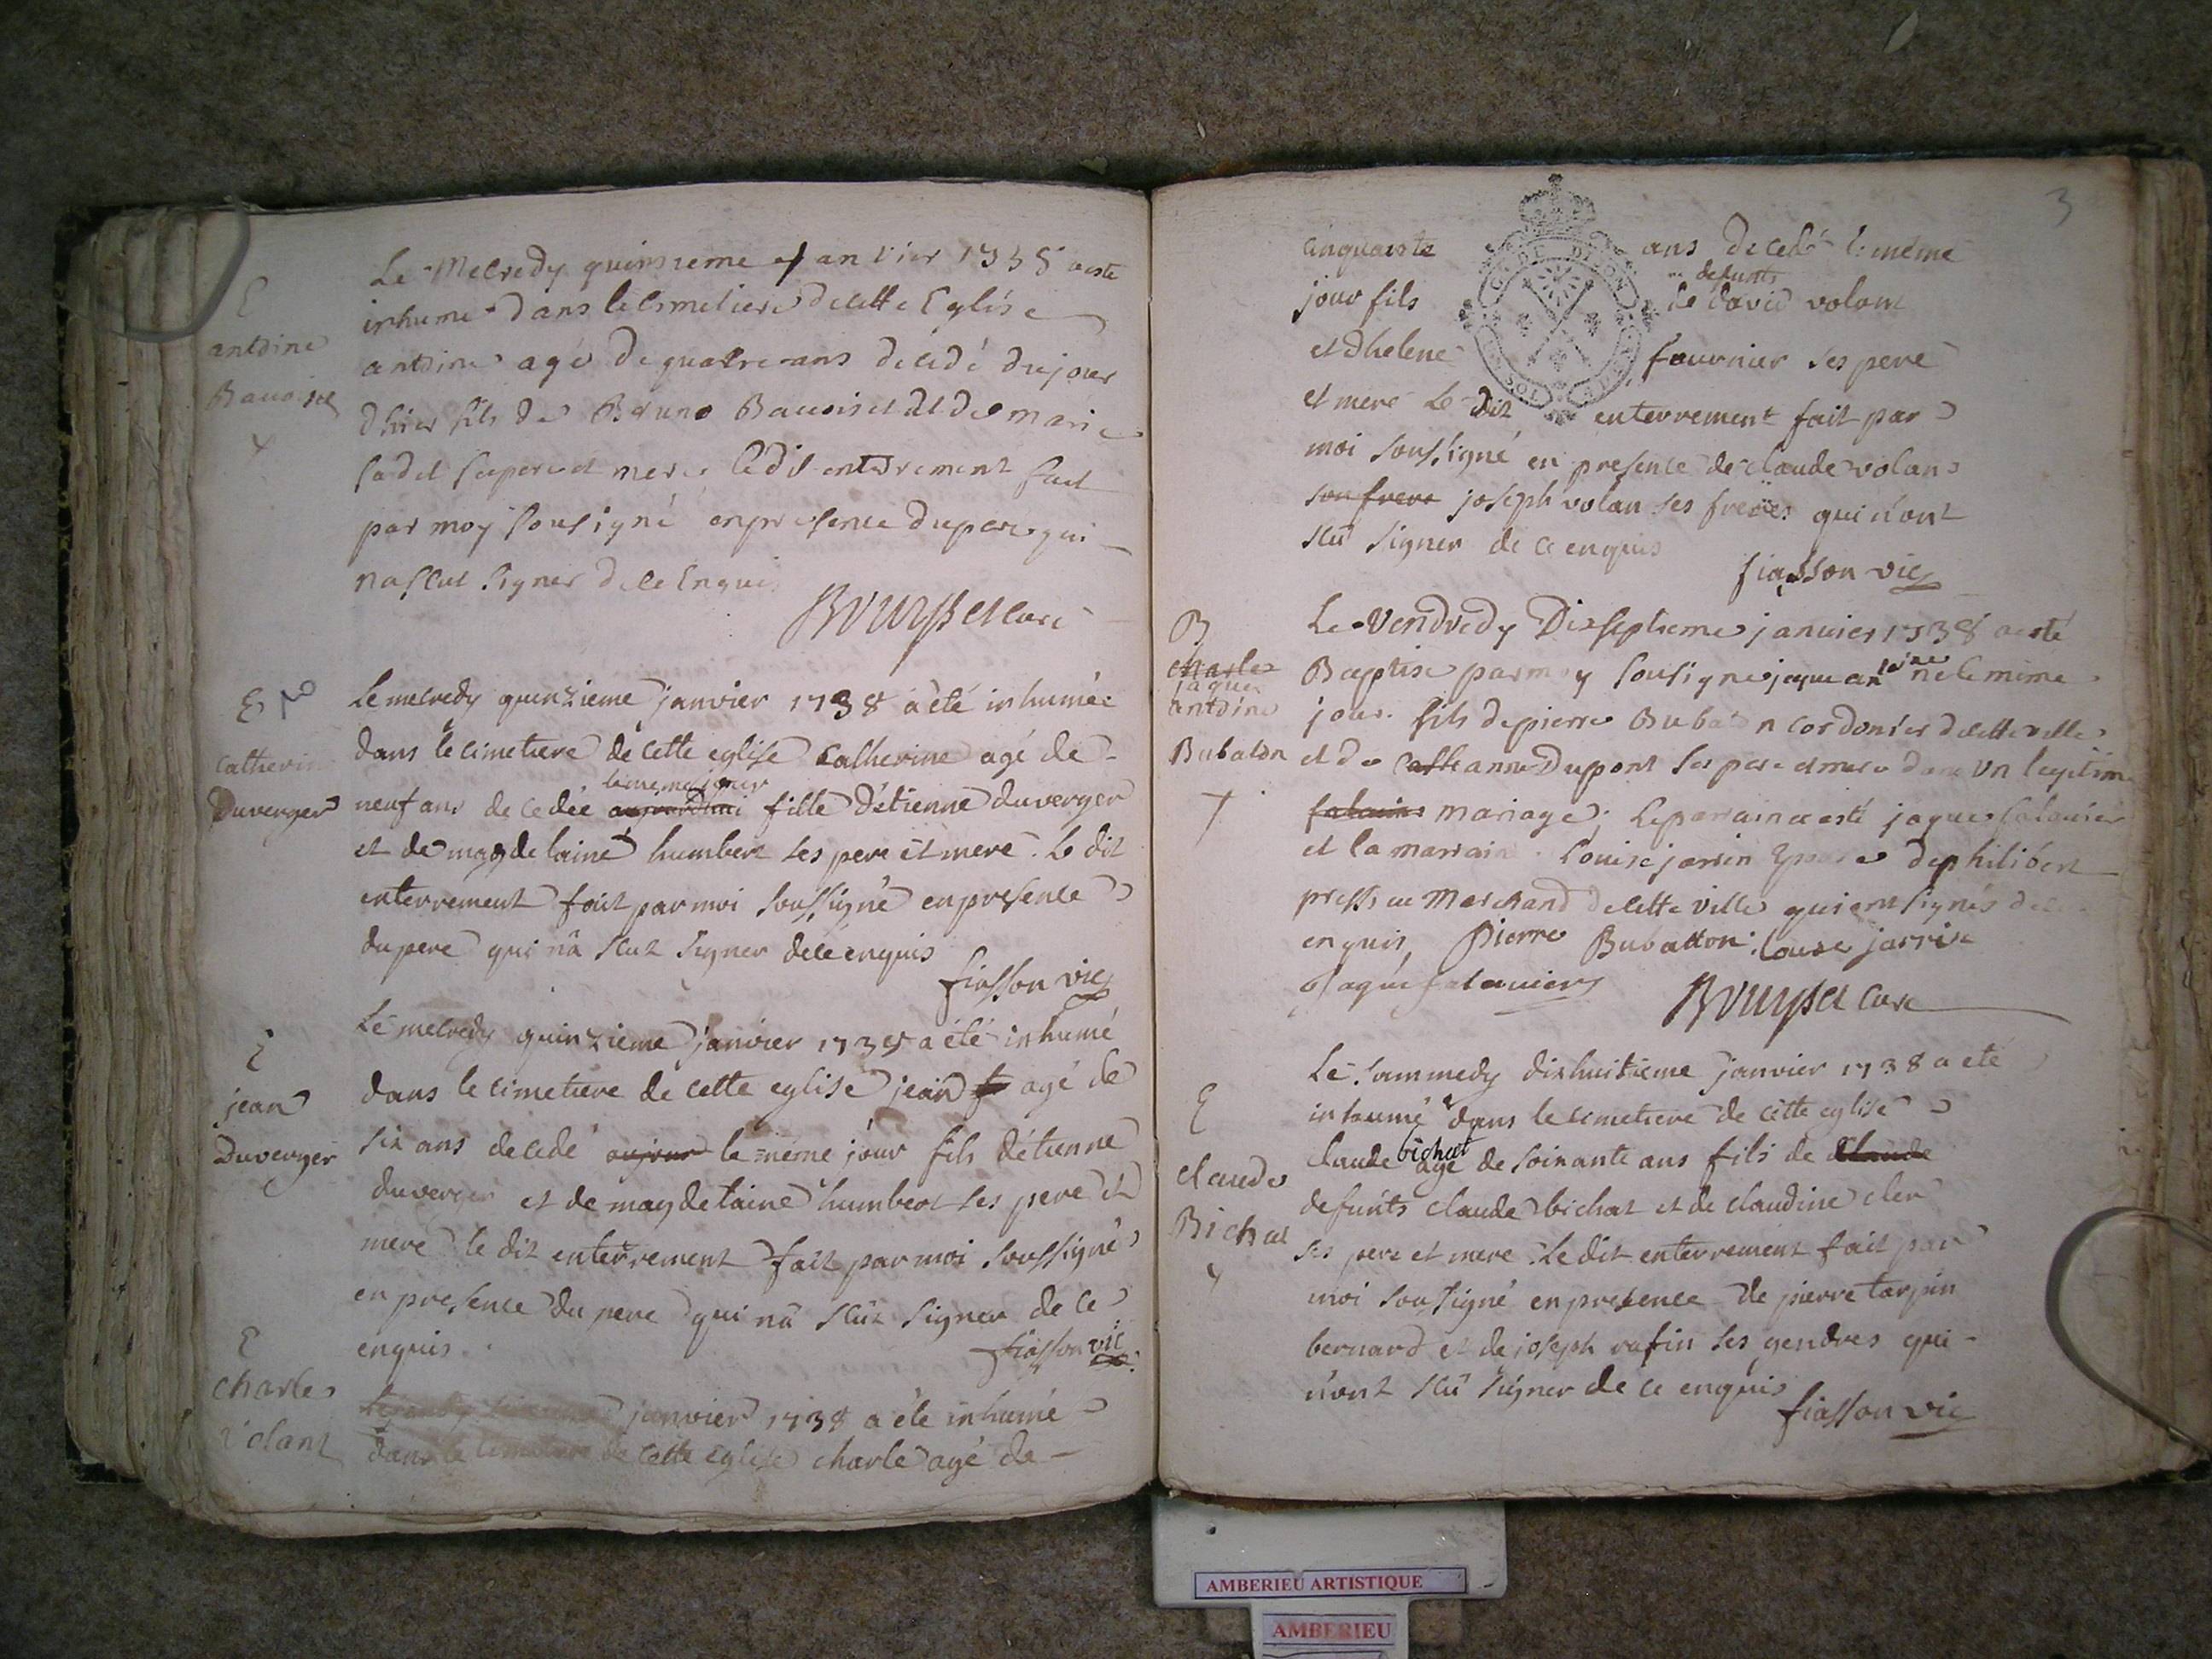 E
antoine
Bauoiset
Le Mecredy quinzieme janvier 1738 aeste
inhumé dans le Cimetiere de cette Eglise
antoine agé de quatre ans décédé du jour
dhier fils de Bruno Bauoiset et de marie
sadet ses pere et mere le dit enterrement fait
par moy sousigné en presence du pere qui
na scut signer de ce Enquis
Curé
E
catherine
Duverger
Le mecredy quinzieme janvier 1738 a été inhumée
dans le cimetiere de cette eglise catherine agé de
le meme jour
neuf ans decedée aujourdhui fille d'étienne duverger
et de magdelaine humbert ses pere et mere. Le dit
enterrement fait par moi soussigné en presence
du pere qui nâ scut signer de ce enquis
fiasson vic
E
jean
Duverger
Le mecredy quinzieme janvier 1738 a été inhumé
dans le cimetiere de cette eglise jean agé de
six ans decedé le même jour fils d'étienne
duverger et de magdelaine humbert ses pere et
mere le dit enterrement fait par moi soussigné
en presence du pere qui nâ scut signer de ce
enquis
fiasson vic
E
charles
volant
janvier 1738 a éte inhumé
dans le cimetiere de cette eglise charle agé de
3
cinquante ans decedé le même
defunts
jour fils de david volant
et dhelene fournier ses pere
et mere le dit enterrement fait par
moi soussigné en presence de claude volan
son frere joseph volan ses freres qui n'ont
scû signer de ce enquis
fiasson vic
B
charles
jaques
antoine
Bubaton
Le Vendredy Dixseptieme janvier 1738 aesté
Baptisé par moy sousigné jaque antoine né le mème
jour fils de pierre Bubaton cordonier de cette ville
et de anne Dupont ses pere et mere dans un legitime
mariage; le parrain a esté jaques
et la marraine Louise jarrin Epouse de philibert
Marchand de cette ville qui ont signés de ce
enquis, Pierre Bubatton Louse jarrin
jaque
Curé
E
claude
Bichat
Le sammedy dixhuitieme janvier 1738 a eté
inhumé dans le cimetiere de cette eglise
bichat
claude agé de soixante ans fils de claude
defunts claude bichat et de claudine cler
ses pere et mere. Le dit enterrement fait par
moi soussigné en presence de pierre tarpin
bernard et de joseph rafin ses gendres qui
n'ont scû signer de ce enquis
fiasson vic
AMBERIEU ARTISTIQUE
AMBERIEU